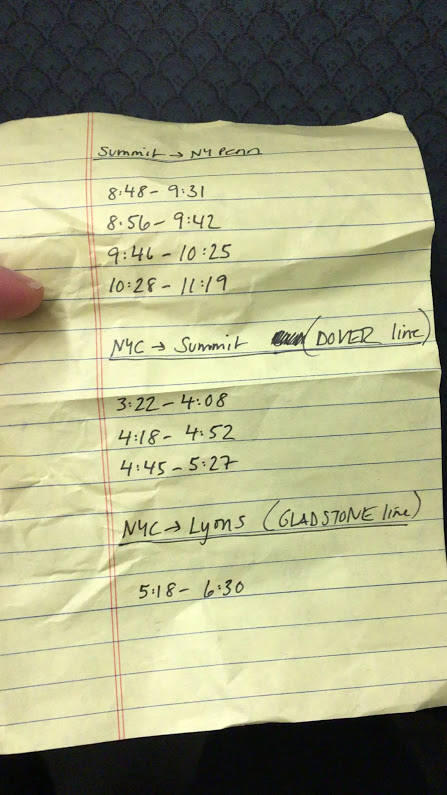 Summit → NY Penn
8:48 - 9:31
8:56 - 9:42
9:46 - 10:25
10:28 - 11:19
NYC → Summit (DOVER line)
3:22 - 4:08
4:18 - 4:52
4:45 - 5:27
NYC → Lyons (GLADSTONE line)
5:18 - 6:30